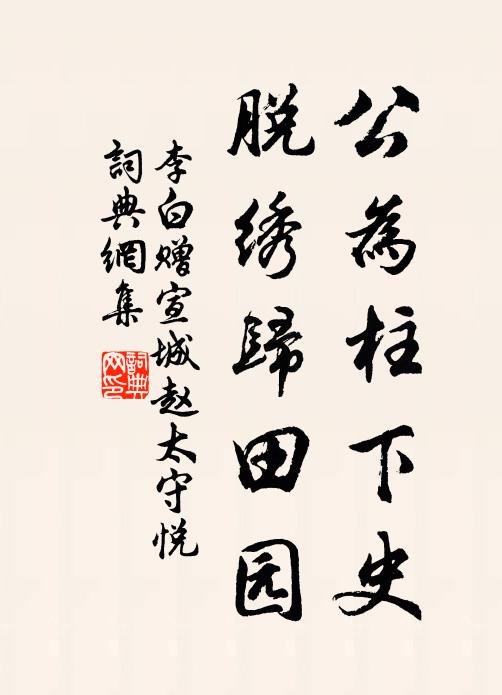 公為柱下史
脱绣歸田园
李白赠宣城赵太守悦
詞典網集
詞典
网印